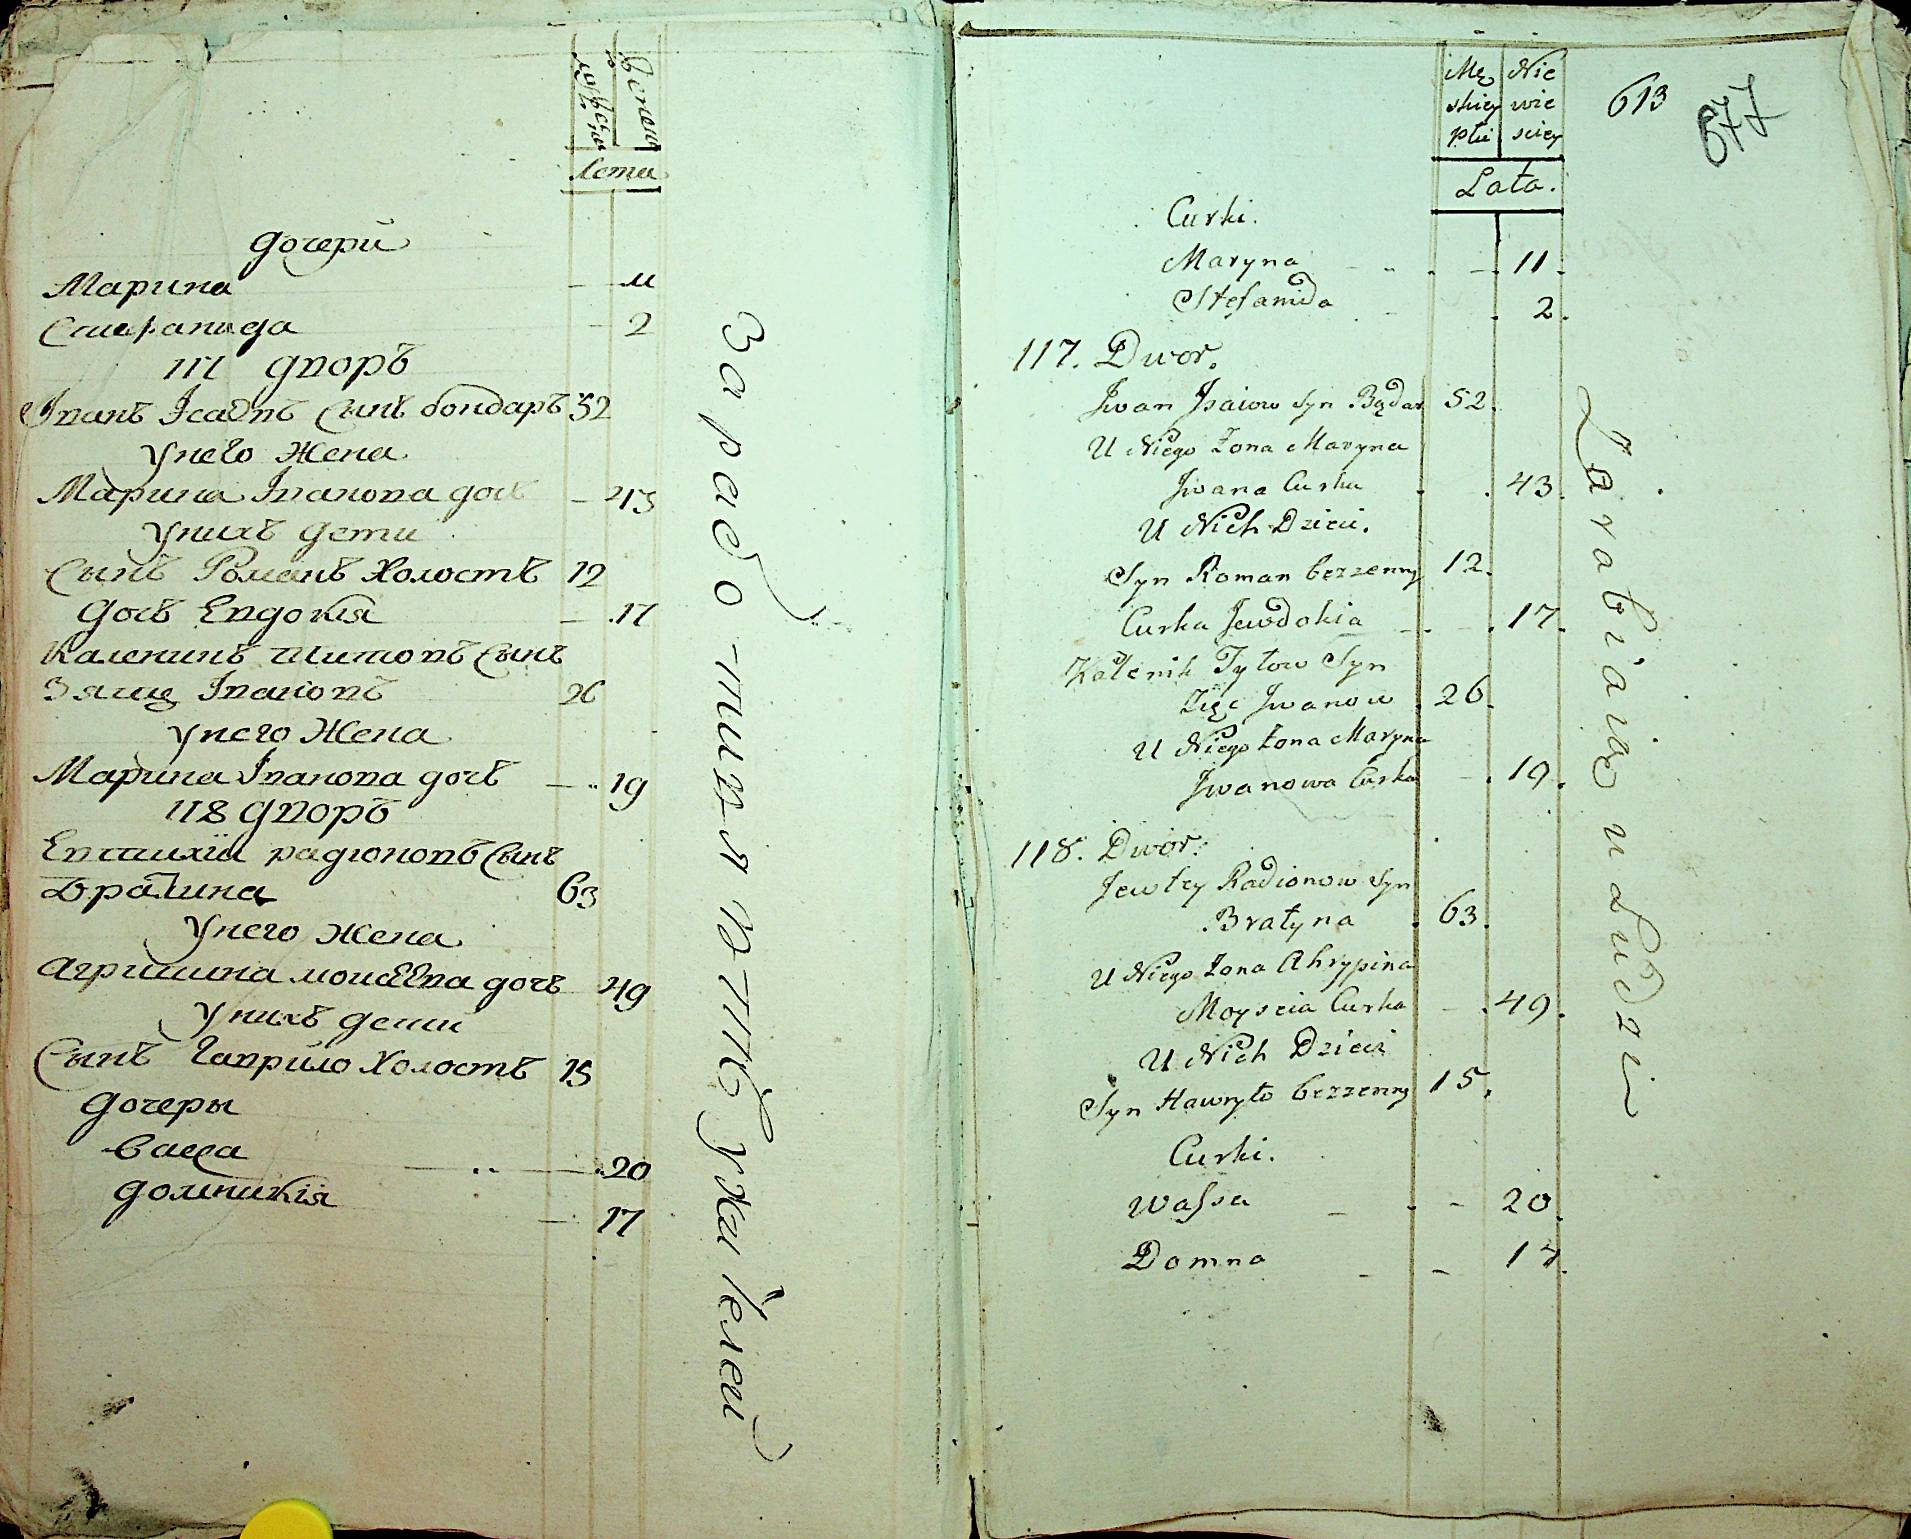 Лета
дочери
Марина — 11
Стефанида — 2
117 дворъ
Іванъ Ісаевъ сынъ бондаръ 52
У него жена
Марина Іванова дочь — 43
У нихъ дети
Сынъ Романъ холостъ 12
Дочь Евдокія — 17
Каленикъ Титовъ сынъ
Зять Івановъ 26
У него жена
Марина Іванова дочь — 19
118 дворъ
Евтихій радіоновъ сынъ
Братина 63
У него жена
Агрипина моисеева дочь 49
У нихъ дети
Сынъ Гаврило холостъ 15
дочеры
Васса — 20
домникія — 17
Заработник
Męskiey płci
Niewieściey
613
677
Lata.
Curki.
Maryna — 11.
Stefanida 2.
117. Dwor.
Jwan Jsaiow Syn Bądar 52.
U Niego Żona Maryna
Jwana Curka 43.
U Nich Dzieci.
Syn Roman bezzenny 12.
Curka Jewdokia — 17.
Kalenik Tytow Syn
Zięć Jwanow 26.
U Niego żona Maryna
Jwanowa Curka — 19.
118. Dwor.
Jewtey Radionow Syn
Bratyna 63.
U Niego Żona Ahrypina
Moyseia Curka — 49.
U Nich Dzieci
Syn Hawryło bezzenny 15.
Curki.
Wassa — 20.
Domna — 17.
Zarabiaią u ludzi